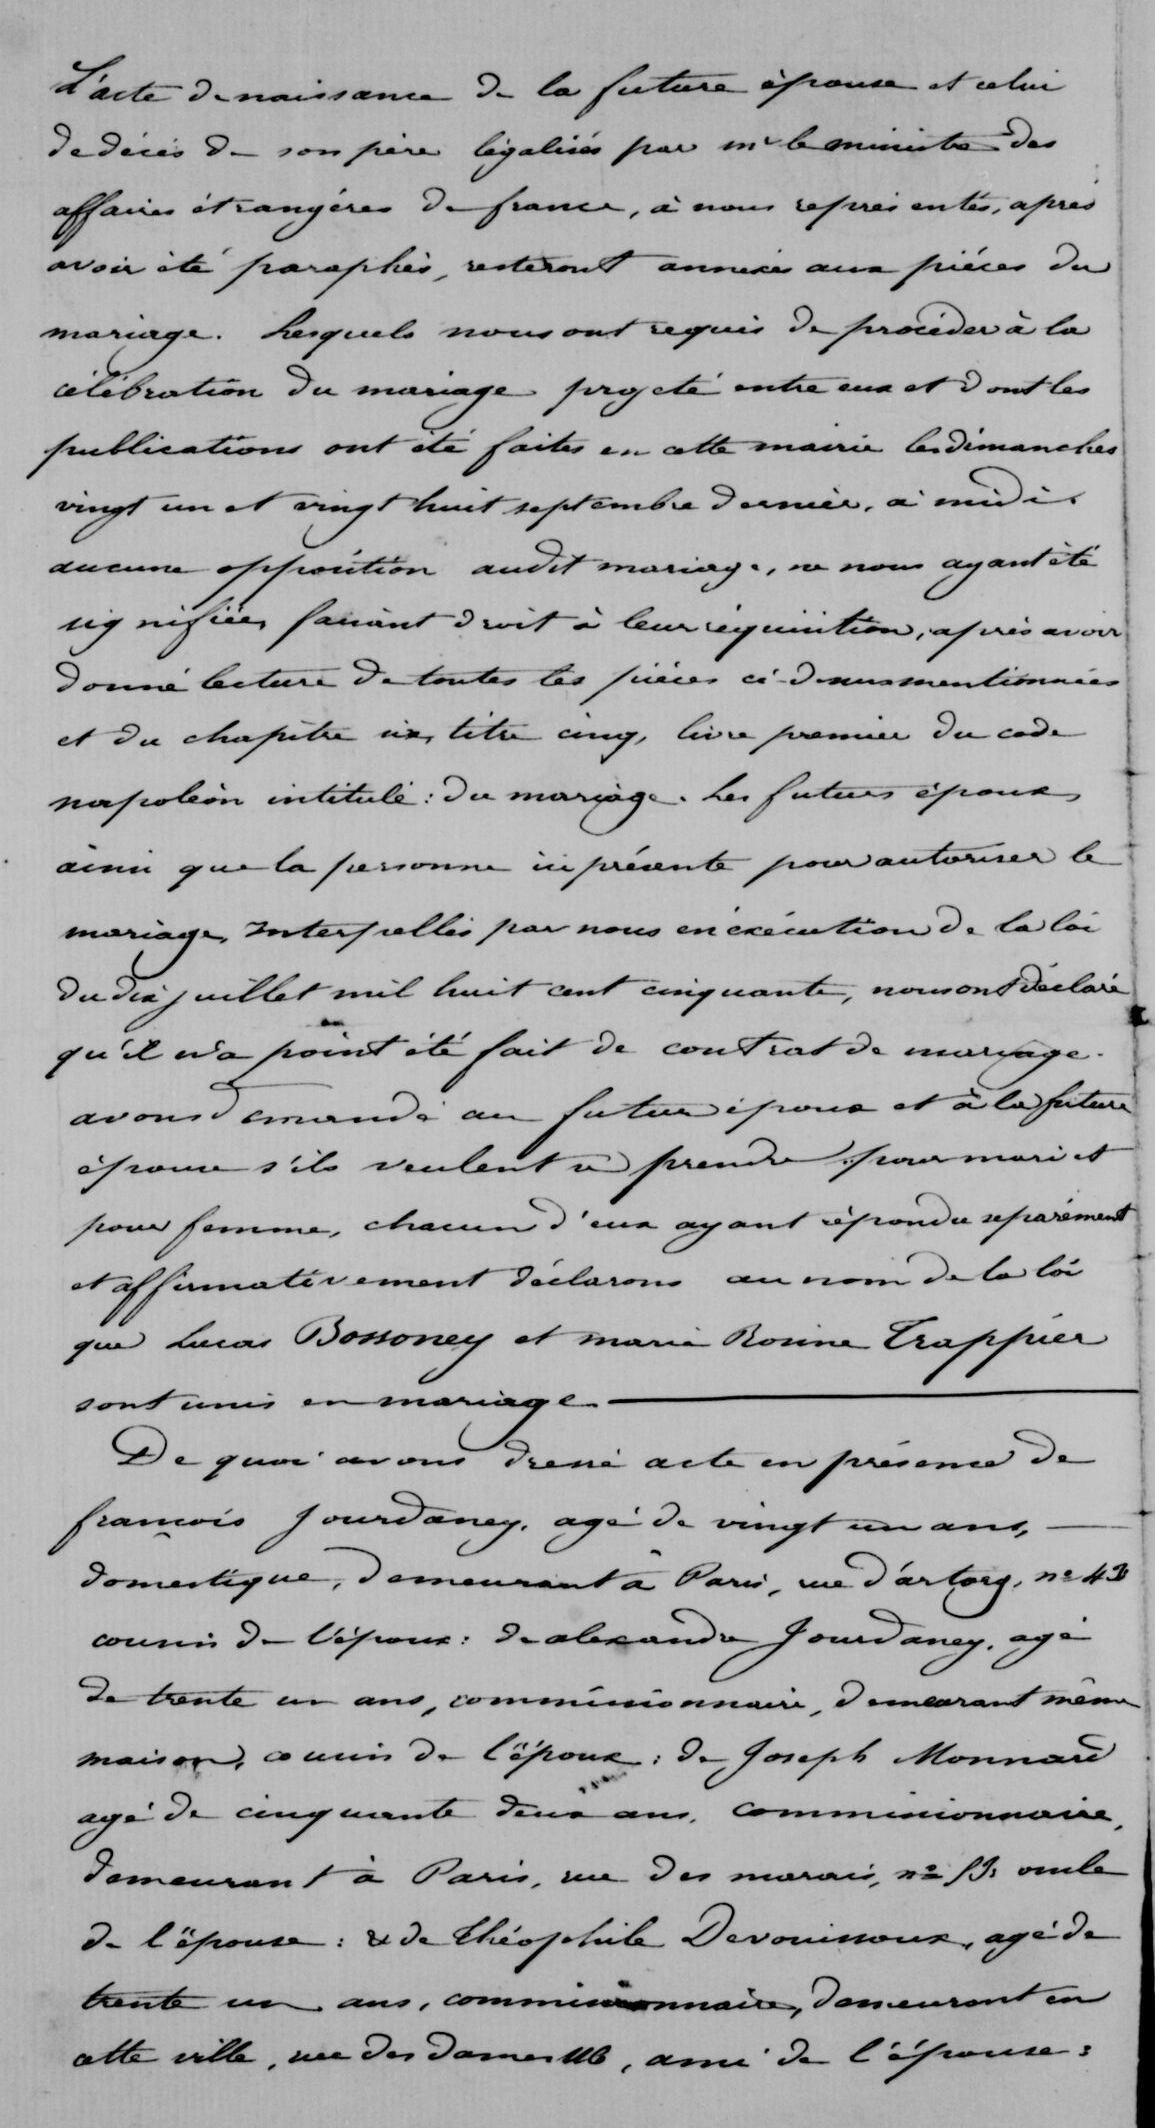 L'acte de naissance de la future épouse et celui
de décès de son père légalisés par mr le ministre des
affaires étrangères de france, à nous représentés, après
avoir été paraphés, resteront annexés aux pièces du
mariage. Lesquels nous ont requis de procéder à la
célébration du mariage projeté entre eux et dont les
publications ont été faites en cette mairie les dimanches
vingt un et vingt huit septembre dernier, à midi.
aucune opposition audit mariage, ne nous ayant été
signifiée, faisant droit à leur réquisition, après avoir
donné lecture de toutes les pièces ci-dessus mentionnées
et du chapitre six, titre cinq, livre premier du code
napoléon intitulé : du mariage. Les futurs époux,
ainsi que la personne ici présente pour autoriser le
mariage, Interpellés par nous en exécution de la loi
du dix juillet mil huit cent cinquante, nous ont déclaré
qu'il n'a point été fait de contrat de mariage.
avons demandé au futur époux et à la future
épouse s'ils veulent se prendre pour mari et
pour femme, chacun d'eux ayant répondu séparément
et affirmativement déclarons au nom de la loi
que Lucas Bossoney et marie Rosine Trappier
sont unis en mariage
De quoi avons dressé acte en présence de
françois Jourdaney, agé de vingt un ans,
domestique, demeurant à Paris, rue d'artorg, no 43
cousin de l'époux : de alexandre Jourdaney, agé
de trente un ans, commissionnaire, demeurant même
maison, cousin de l'époux : de Joseph Monnard
agé de cinquante deux ans, commissionnaire,
demeurant à Paris, rue des marais, no oncle
de l'épouse : & de Théophile Devouissoux, agé de
trente un ans, commissionnaire, demeurant en
cette ville, rue des dames 116, ami de l'épouse :